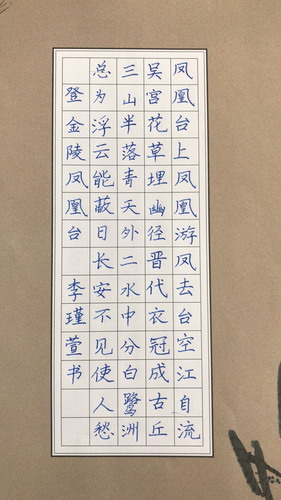 凤凰台上凤凰游凤去台空江自流
吴宫花草埋幽径晋代衣冠成古丘
三山半落青天外二水中分白鹭洲
总为浮云能蔽日长安不见使人愁
登金陵凤凰台 李瑾萱书